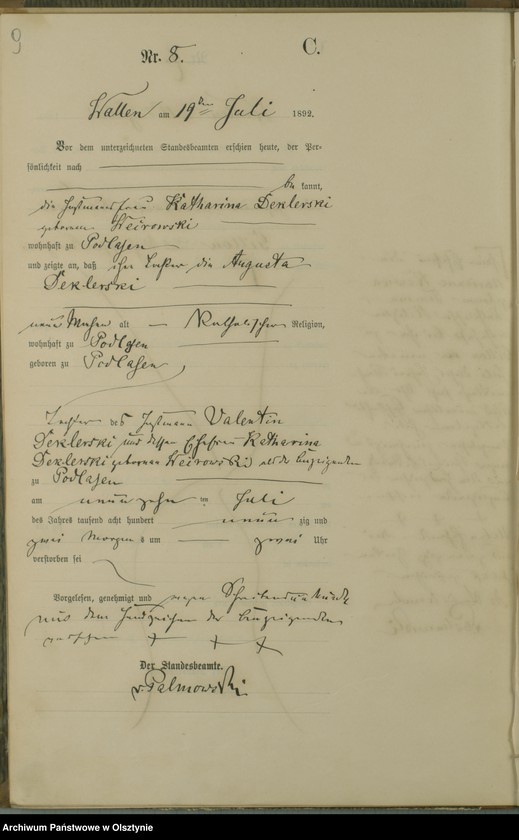 9
Nr. 8. C.
Wallen am 19ten Juli 1892.
Vor dem unterzeichneten Standesbeamten erschien heute, der Per-
sönlichkeit nach
be kannt,
die Instmannsfrau Katharina Deklerski
geborene Weirowski
wohnhaft zu Podlasen
und zeigte an, daß ihre Tochter die Augusta
Deklerski
neun Wochen alt — Katholischer Religion,
wohnhaft zu Podlasen
geboren zu Podlasen
Tochter des Instmann Valentin
Deklerski und dessen Ehefrau Katharina
Deklerski geborene Weirowski
zu Podlasen
am neunzehn ten Juli
des Jahres tausend acht hundert neun zig und
zwei Morgen s um zwei Uhr
verstorben sei
Vorgelesen, genehmigt und wegen
mit dem Handzeichen der Anzeigenden
versehen + + +
Der Standesbeamte.
v. Palmowski
Archiwum Państwowe w Olsztynie